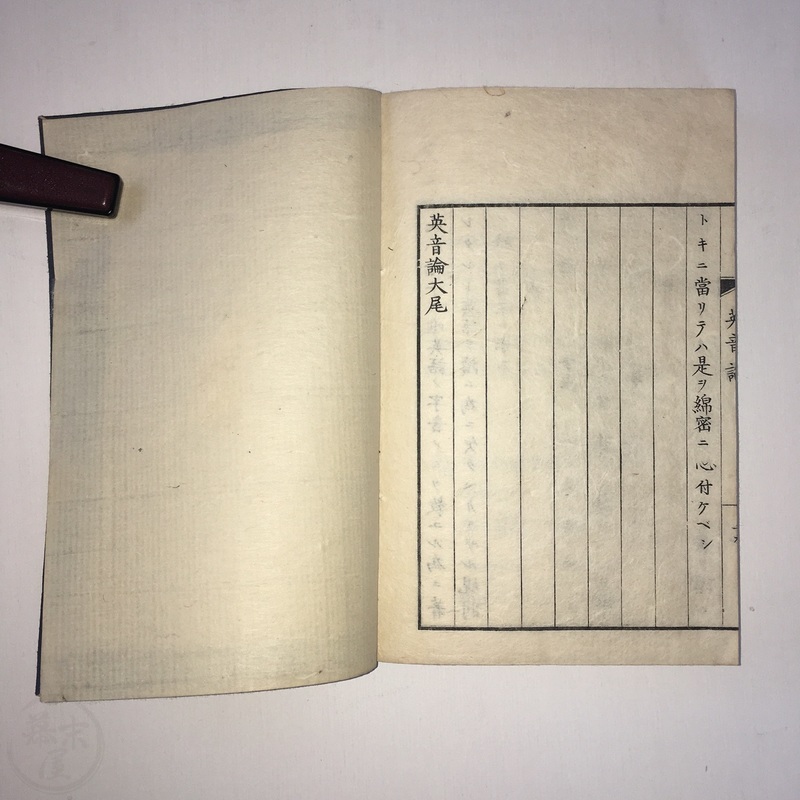 英音論
トキニ當リテハ是ヲ綿密ニ心付ケベシ
英音論大尾